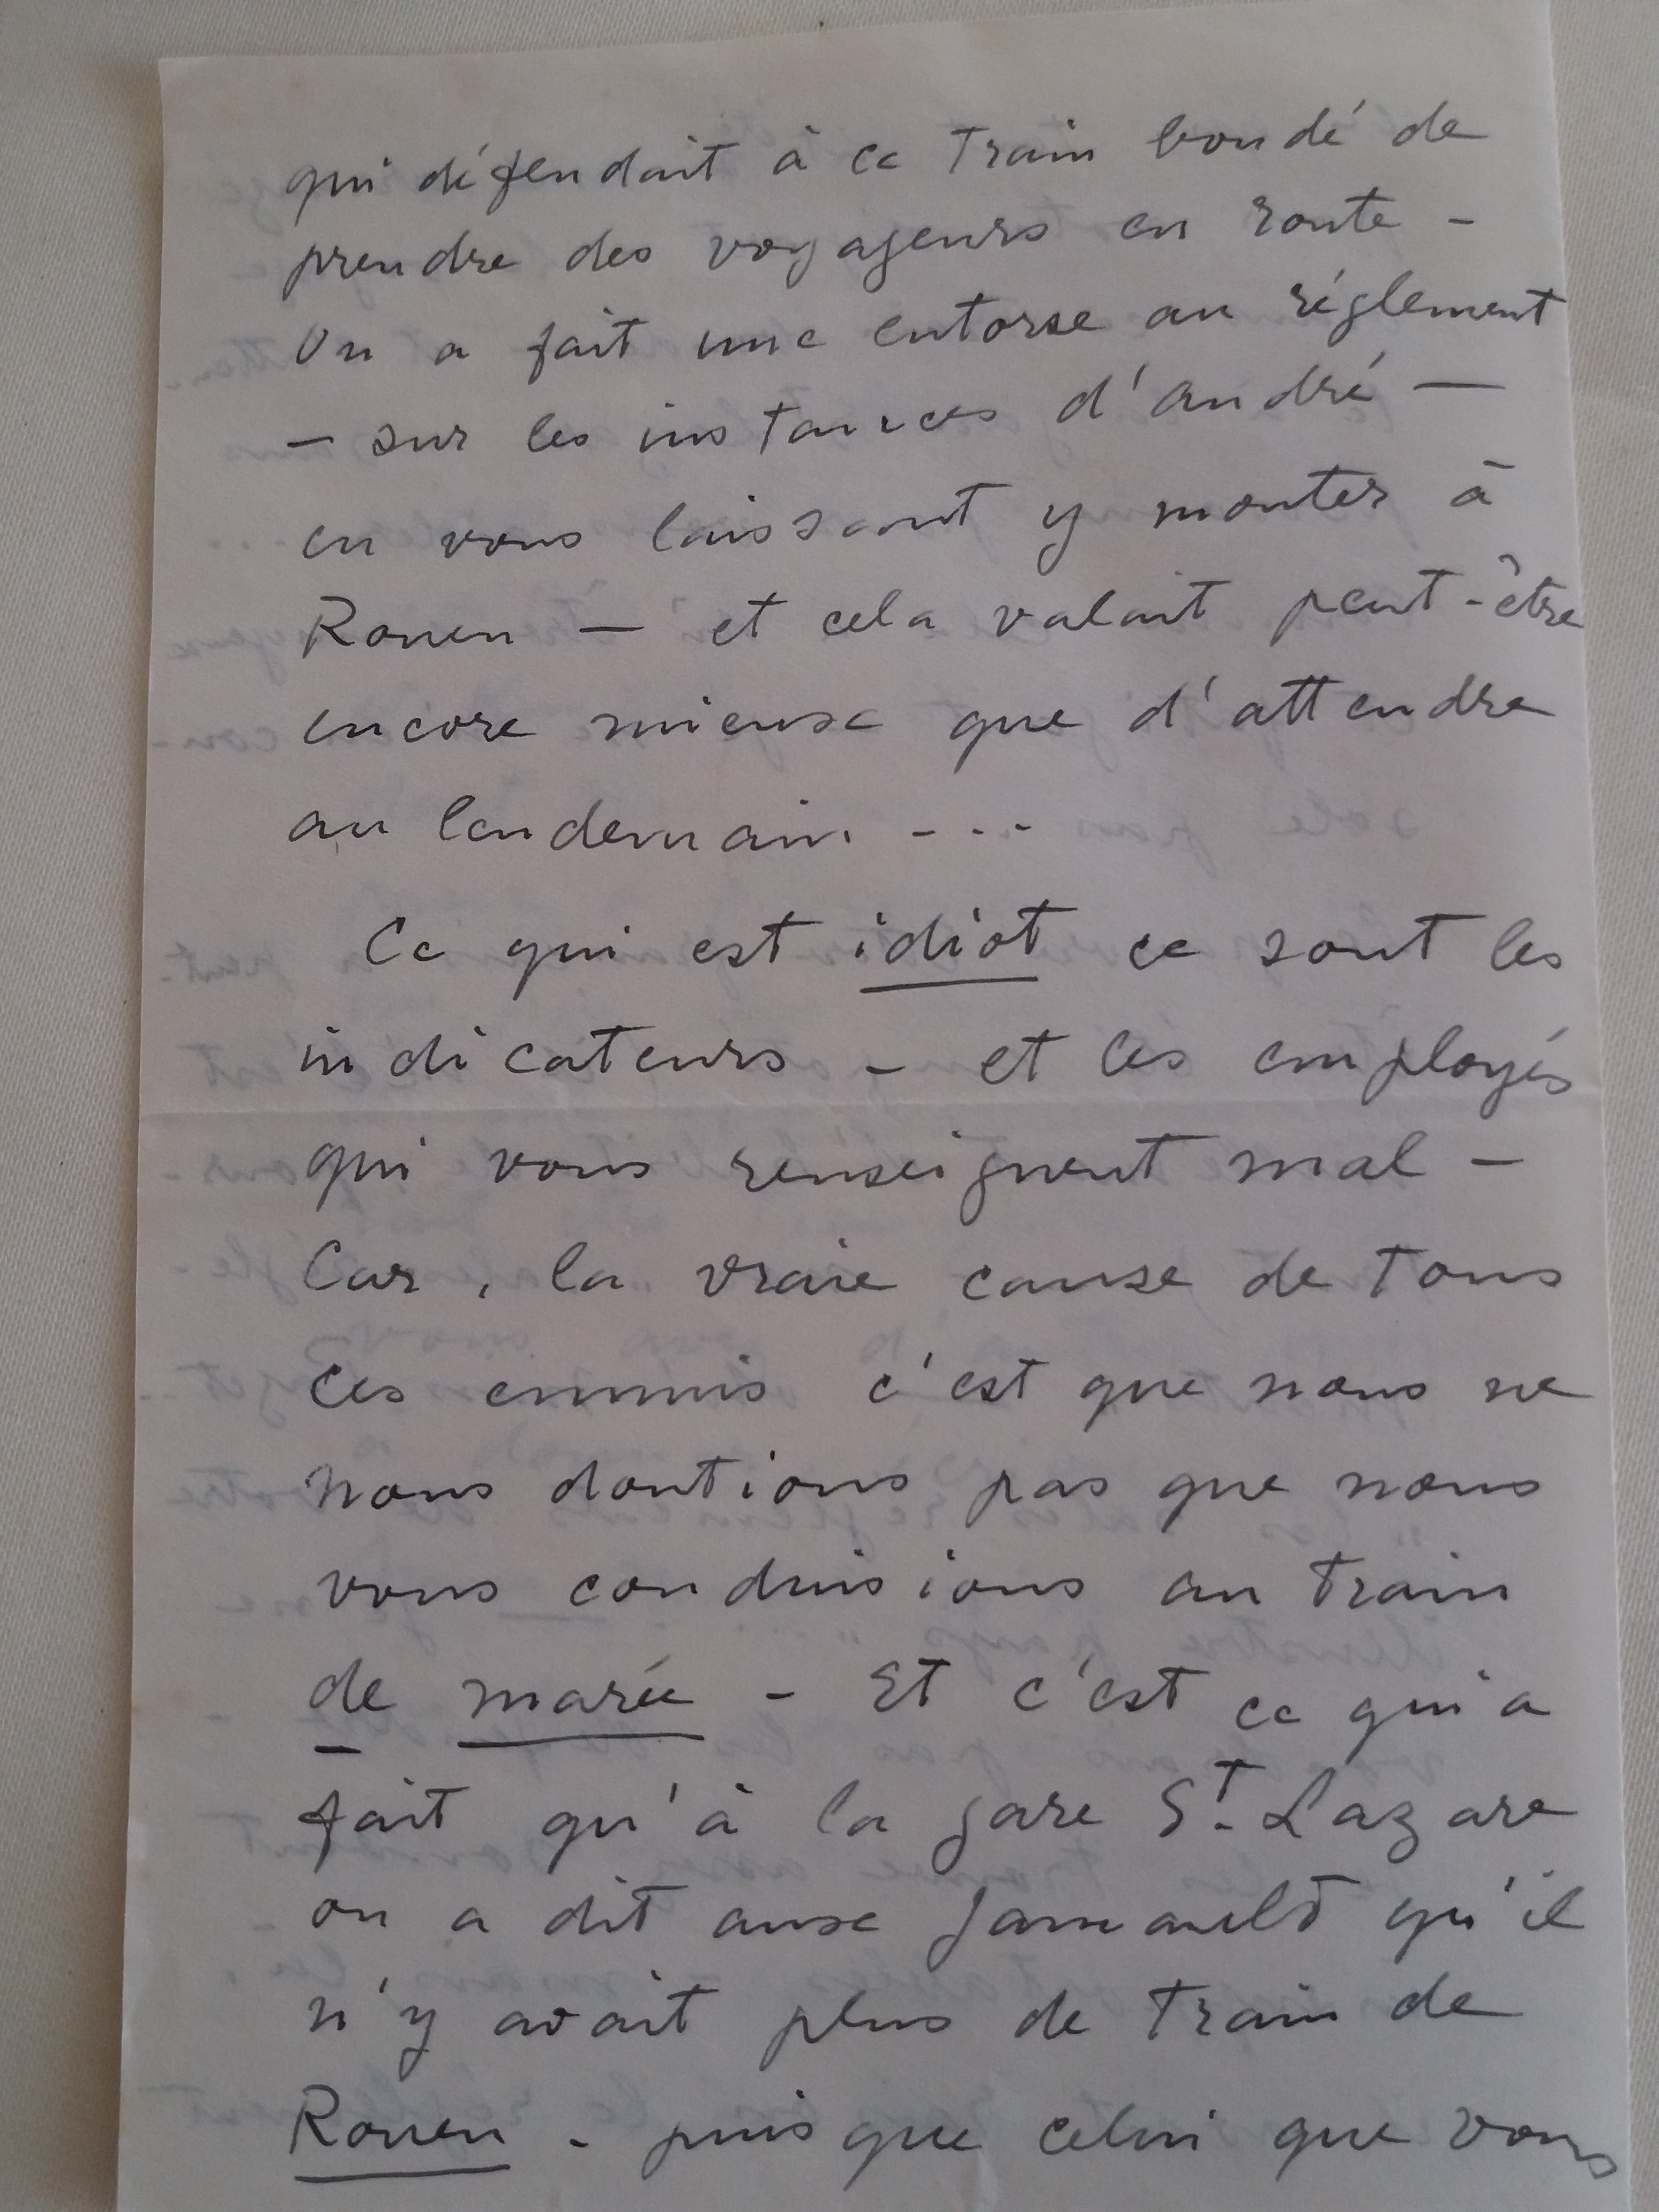 qui défendait à ce train bondé de
prendre des voyageurs en route –
On a fait une entorse au réglement
– sur les instances d'André –
en vous laissant y monter à
Rouen – et cela valait peut-être
encore mieux que d'attendre
au lendemain ...
Ce qui est idiot ce sont les
indicateurs – et les employés
qui vous renseignent mal –
Car, la vraie cause de tous
ces ennuis c'est que nous ne
nous doutions pas que nous
vous conduisions au train
de marée – Et c'est ce qui a
fait qu'à la gare St. Lazare
on a dit aux qu'il
n'y avait plus de train de
Rouen – puisque celui que vous